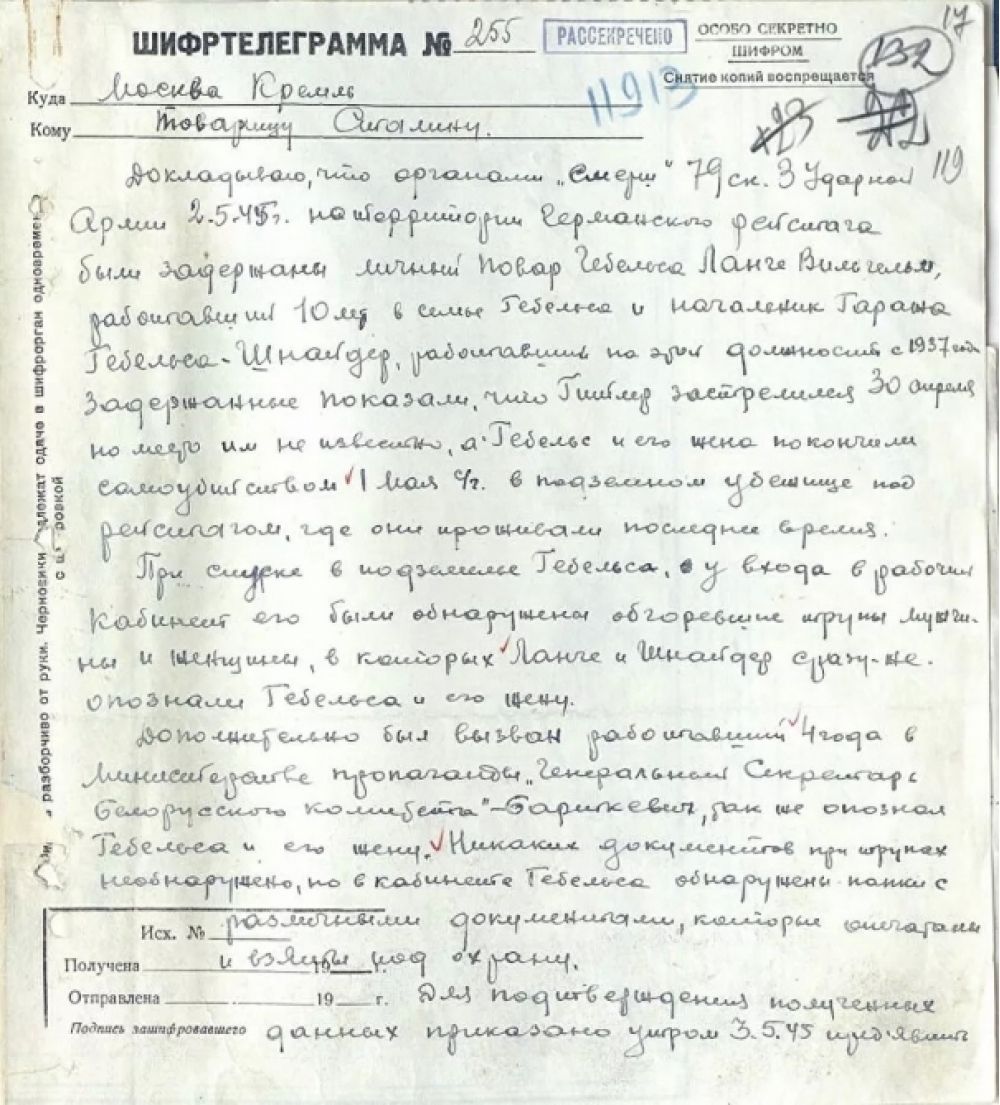 17
ШИФРТЕЛЕГРАММА № 255
РАССЕКРЕЧЕНО
ОСОБО СЕКРЕТНО
ШИФРОМ
Снятие копий воспрещается
132
Куда Москва Кремль
11913
Кому Товарищу Сталину.
119
Докладываю, что органами „Смерш" 79 ск. 3 Ударной
Армии 2.5.45г. на территории Германского рейхстага
были задержаны личный повар Гебельса Ланге Вильгельм,
работавший 10 лет в семье Гебельса и начальник Гаража
Гебельса-Шнайдер, работавший на этой должности с 1937 года
Задержанные показали, что Гитлер застрелился 30 апреля
но место им не известно, а Гебельс и его жена покончили
самоубийством 1 Мая с/г. в подземном убежище под
рейхстагом, где они проживали последнее время.
При спуске в подземелье Гебельса, у входа в рабочий
Кабинет его были обнаружены обгоревшие трупы мужчи-
ны и женщины, в которых Ланге и Шнайдер сразу-же
опознали Гебельса и его жену.
Дополнительно был вызван работавший 4 года в
Министерстве пропаганды „Генеральный Секретарь
Белорусского комитета"-Барткевич, так же опознал
Гебельса и его жену. Никаких документов при трупах
необнаружено, но в кабинете Гебельса обнаружены папки с
различными документами, которые опечатаны
и взяты под охрану.
Для подтверждения полученных
данных приказано утром 3.5.45 предъявить
Исх. №
Получена 19 г.
Отправлена 19 г.
Подпись зашифровавшего
разборчиво от руки. Черновики одаче в шифрорган одновремен
ровкой